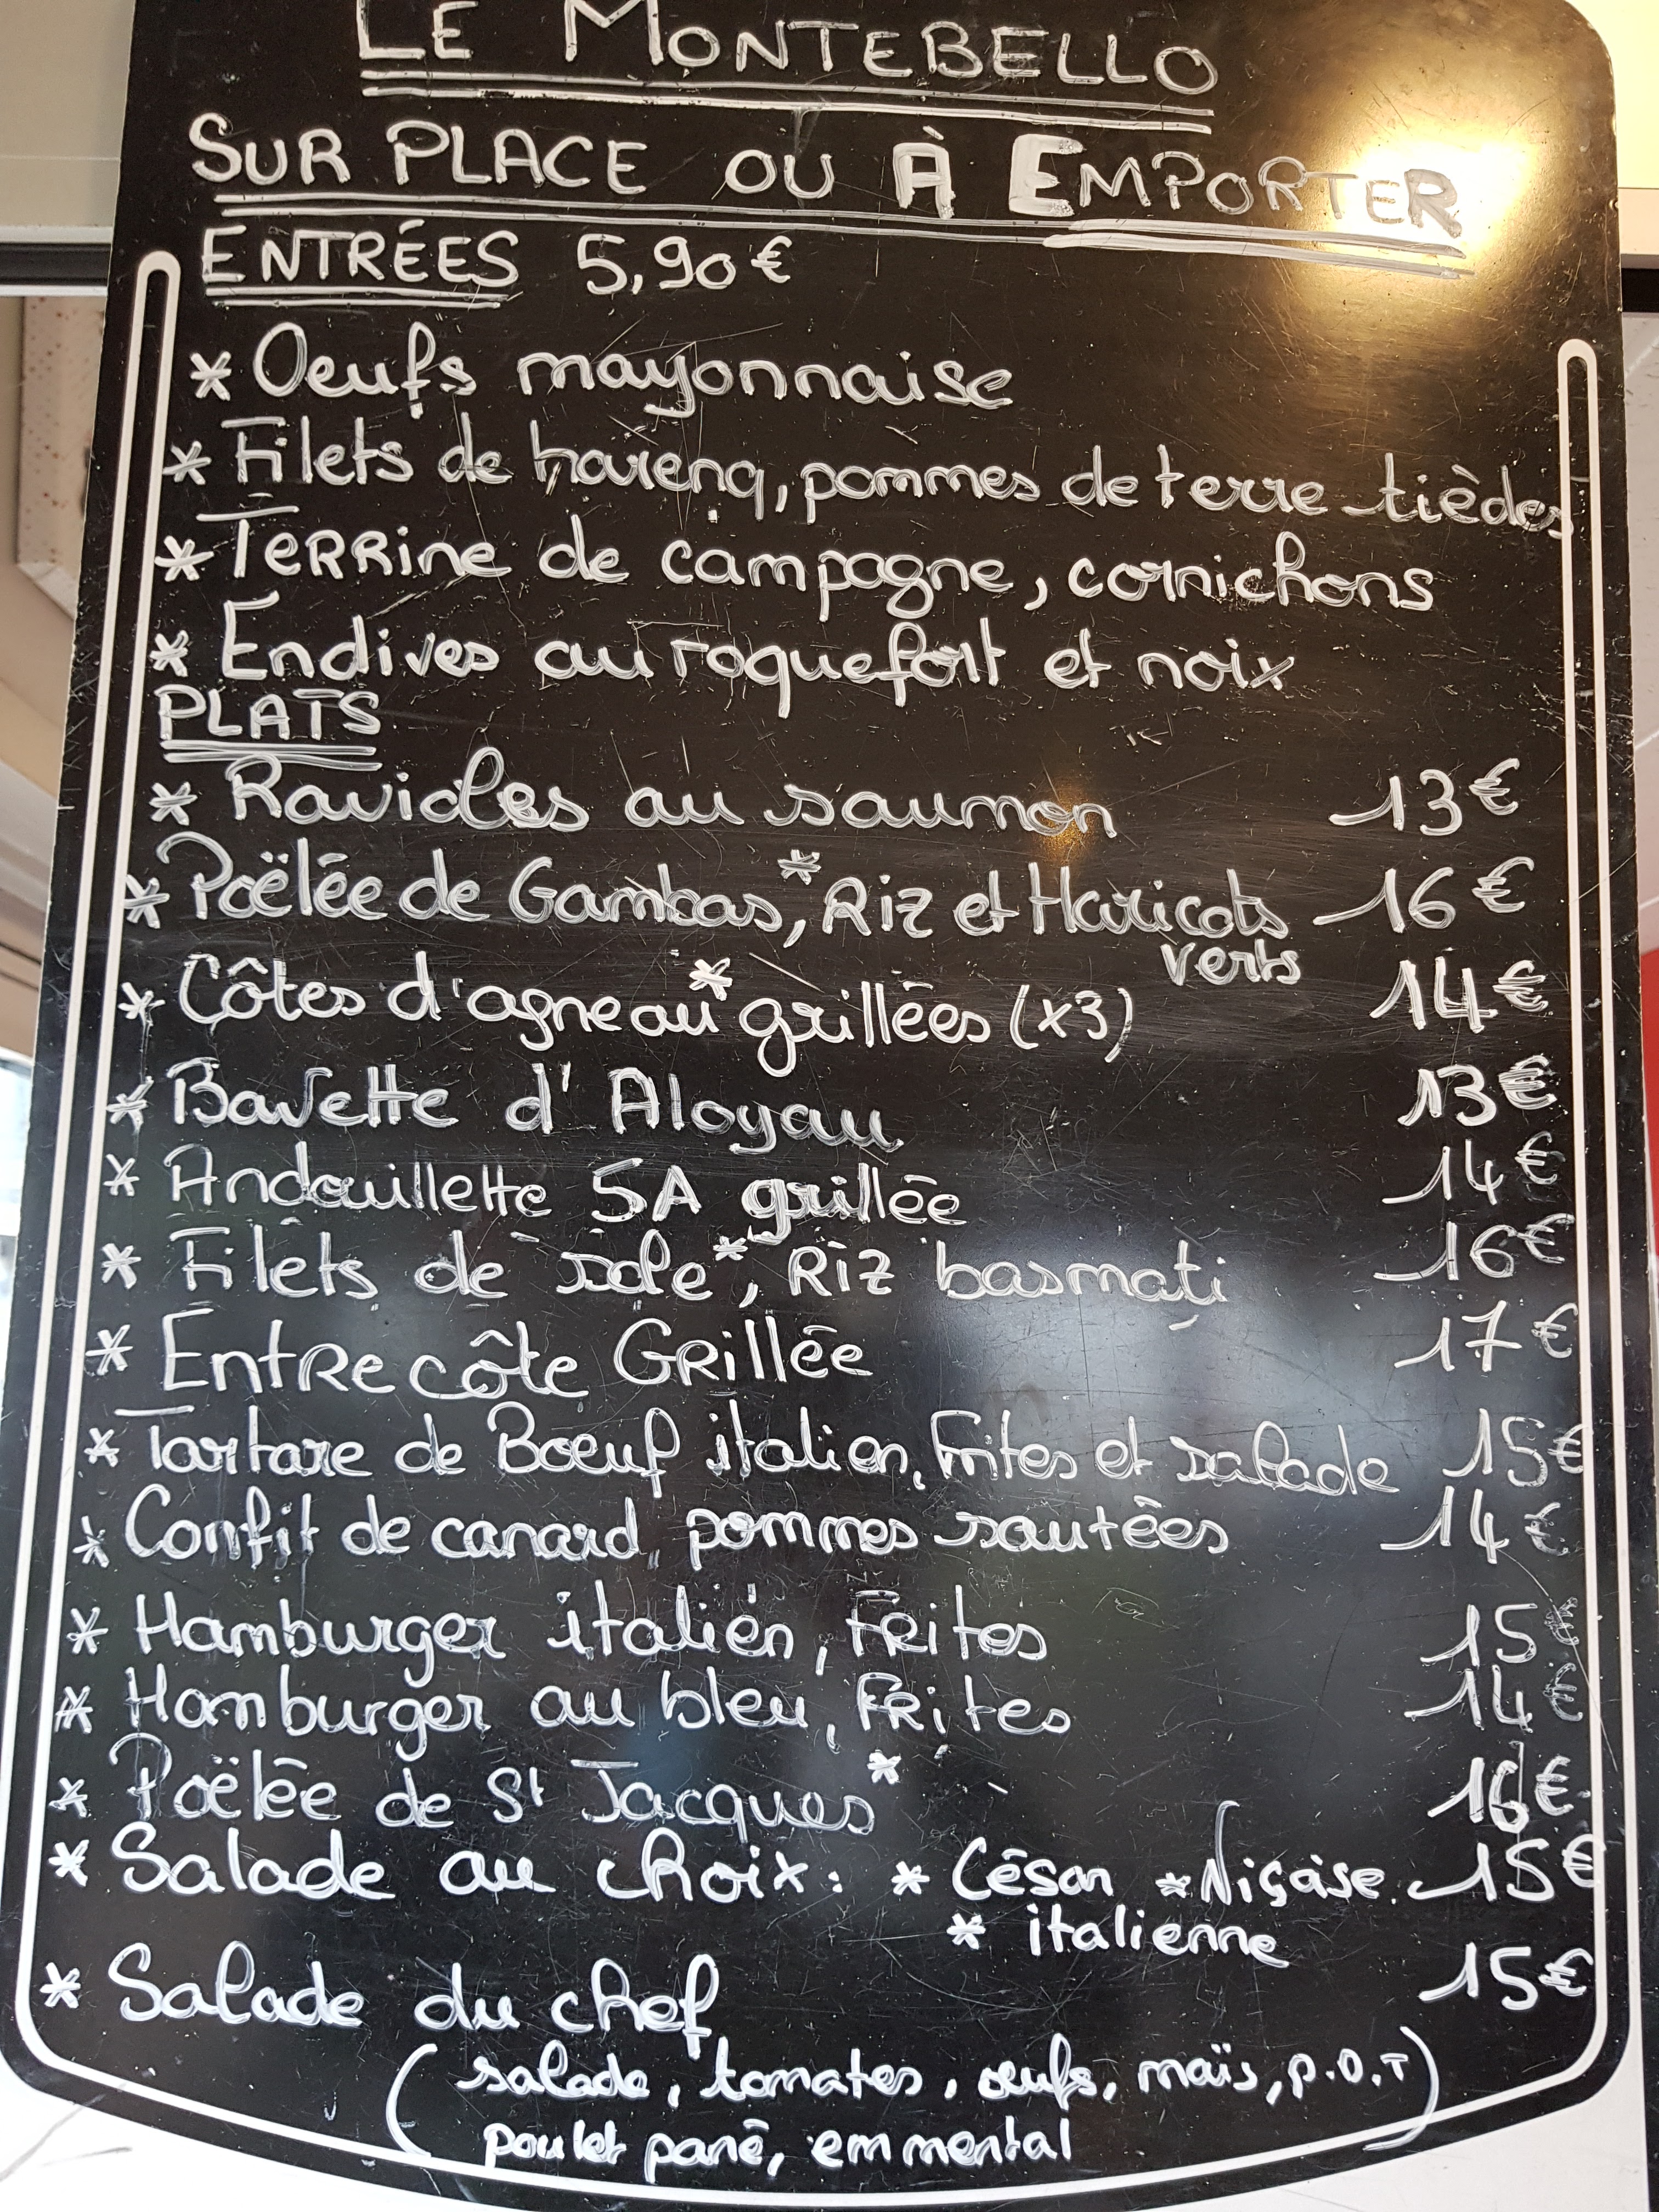 LE MONTEBELLO
SUR PLACE OU À EMPORTER
ENTRÉES 5,90€
* Oeufs mayonnaise
* Filets de hareng, pommes de terre tièdes
* Terrine de campagne, cornichons
* Endives au roquefort et noix
PLATS
* Ravioles au saumon 13€
* Poëlée de Gambas*, Riz et Haricots verts 16€
* Côtes d'agneau* grillées (x3) 14€
* Bavette d'Aloyau 13€
* Andouillette 5A grillée 14€
* Filets de sole*, Riz basmati 16€
* Entrecôte Grillée 17€
* Tartare de Boeuf italien, Frites et salade 15€
* Confit de canard, pommes sautées 14€
* Hamburger italien, Frites 15€
* Hamburger au bleu, Frites 14€
* Poëlée de St Jacques* 16€
* Salade au choix: * César * Niçoise. 15€
* italienne
* Salade du chef 15€
(salade, tomates, oeufs, maïs, p.D.T)
poulet pané, emmental